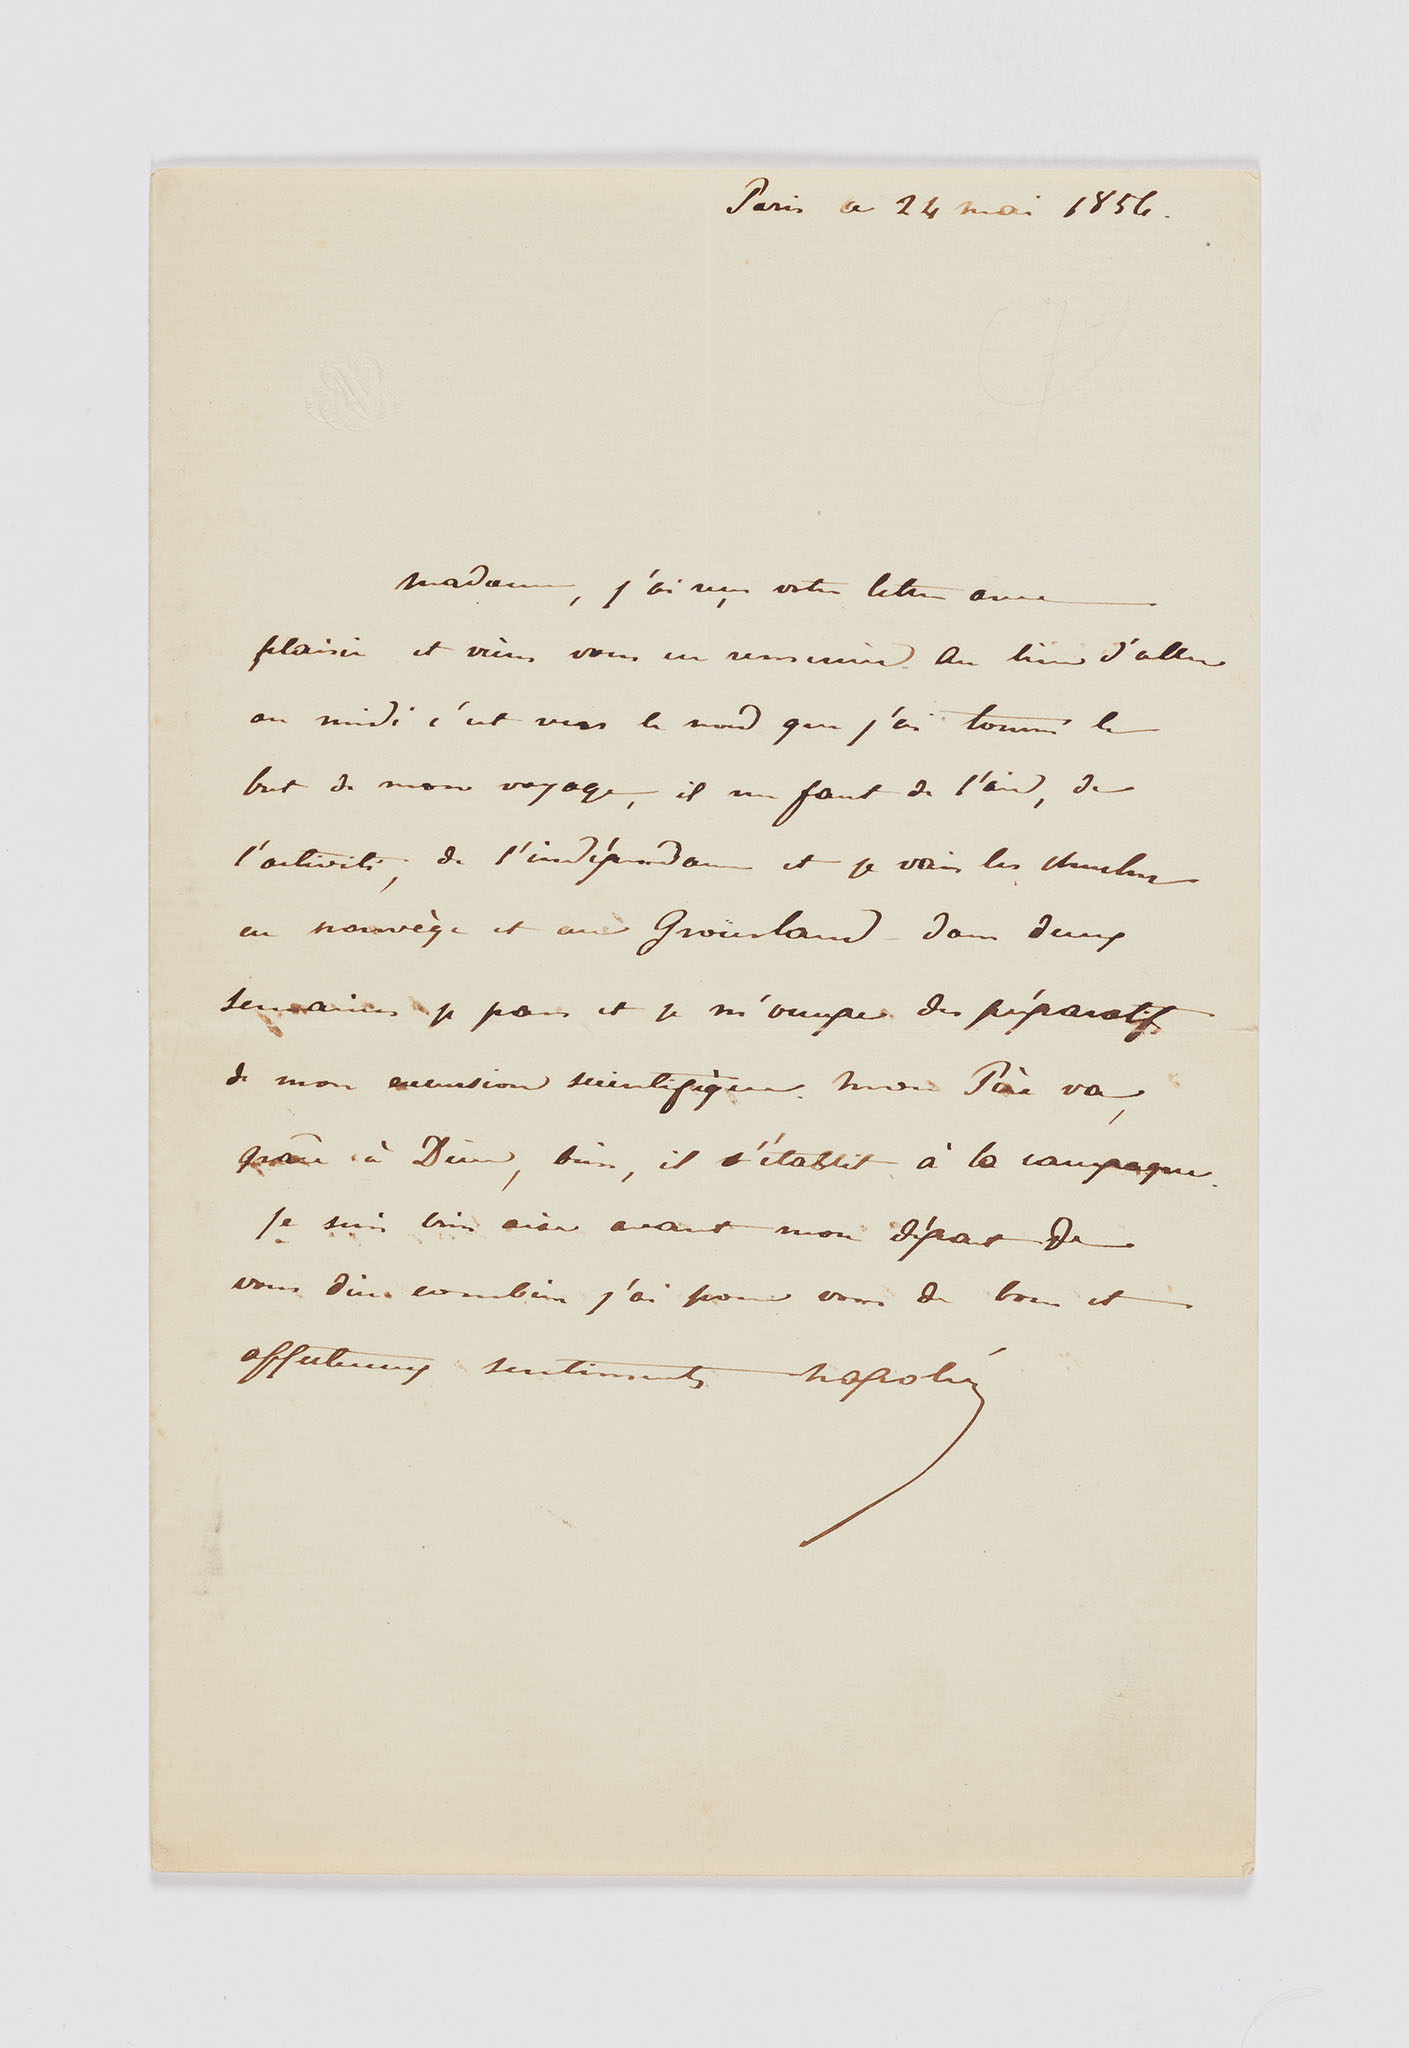 Paris ce 24 mai 1856.
Madame, j'ai reçu votre lettre avec
plaisir et viens vous en remercier. Au lieu d'aller
au midi c'est vers le nord que j'ai tourné le
but de mon voyage, il me faut de l'air, de
l'activité, de l'indépendance et je vais les chercher
en norwège et au Groënland dans deux
semaines je pars et je m'occupe des préparatifs
de mon excursion scientifique. Mon Père va,
grâce à Dieu, bien, il s'établit à la campagne.
Je suis bien aise avant mon départ de
vous dire combien j'ai pour vous de bons et
affectueux sentiments Napoléon